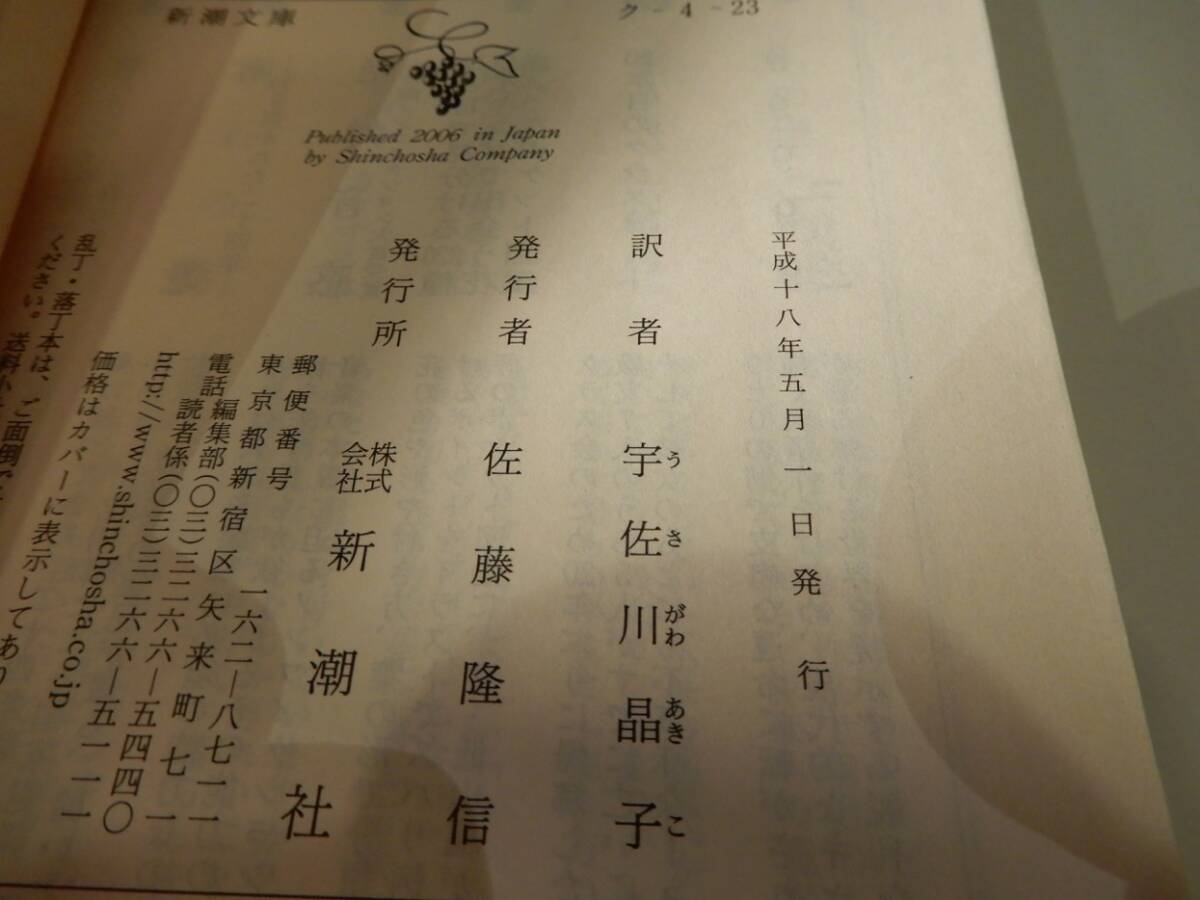 新潮文庫
ク-4-23
Published 2006 in Japan
by Shinchosha Company
平成十八年五月一日発行
訳者 宇佐川晶子
うさがわあきこ
発行者 佐藤隆信
発行所 株式会社 新潮社
郵便番号 一六二―八七一一
東京都新宿区矢来町七一
電話編集部(〇三)三二六六―五四四〇
読者係(〇三)三二六六―五一一一
http://www.shinchosha.co.jp
価格はカバーに表示してあり
乱丁・落丁本は、ご面倒で
ください。送料小